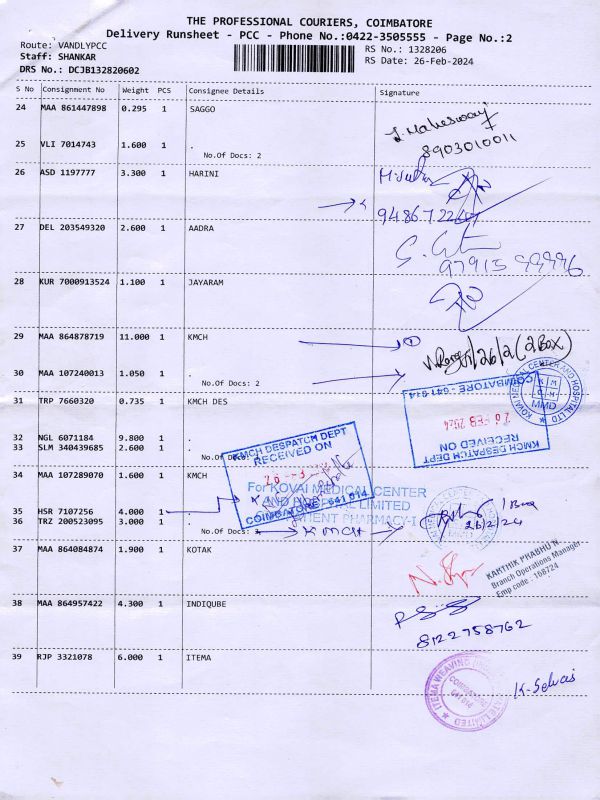 THE PROFESSIONAL COURIERS, COIMBATORE
Delivery Runsheet - PCC - Phone No.:0422-3505555 - Page No.:2
Route: VANDLYPCC
RS No.: 1328206
Staff: SHANKAR
RS Date: 26-Feb-2024
DRS No.: DCJB132820602
S No Consignment No Weight PCS Consignee Details Signature
24 MAA 861447898 0.295 1 SAGGO
8903010011
25 VLI 7014743 1.600 1 .
No.Of Docs: 2
26 ASD 1197777 3.300 1 HARINI
27 DEL 203549320 2.600 1 AADRA
28 KUR 7000913524 1.100 1 JAYARAM
29 MAA 864878719 11.000 1 KMCH
30 MAA 107240013 1.050 1 .
No.Of Docs: 2
31 TRP 7660320 0.735 1 KMCH DES
KMCH DESPATCH DEPT
RECEIVED ON
26 FEB 2024
COIMBATORE - 641 014
KOVAI MEDICAL CENTER AND HOSPITAL LTD
KMCH
MMD
32 NGL 6071184 9.800 1 .
33 SLM 340439685 2.600 1 .
No.Of Docs:
KMCH DESPATCH DEPT
RECEIVED ON
COIMBATORE - 641 014
34 MAA 107289070 1.600 1 KMCH
For KOVAI MEDICAL CENTER
AND HOSPITAL LIMITED
PHARMACY-I
35 HSR 7107256 4.000 1
36 TRZ 200523095 3.000 1 .
No.Of Docs:
KMCH
1 Box
26/2/24
37 MAA 864084874 1.900 1 KOTAK
KARTHIK PRABHU N
Branch Operations Manager
Emp code - 168724
38 MAA 864957422 4.300 1 INDIQUBE
8122758762
39 RJP 3321078 6.000 1 ITEMA
K. Selvas